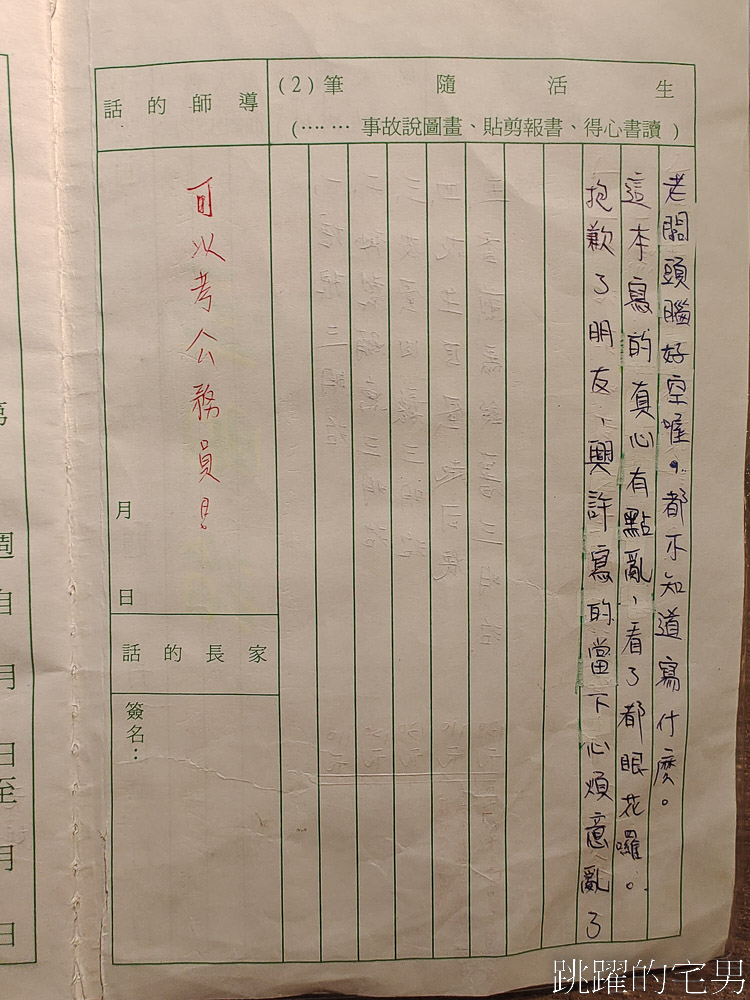 生活隨筆(2)
(讀書心得、書報剪貼、畫圖說故事……)
老闆頭腦好空喔。都不知道寫什麼。
這本寫的真心有點亂，看了都眼花囉。
抱歉了朋友，興許寫的當下心煩意亂了
導師的話
可以考公務員！
月 日
家長的話
簽名：
週
自
月
日
至
月
日
跳躍的宅男